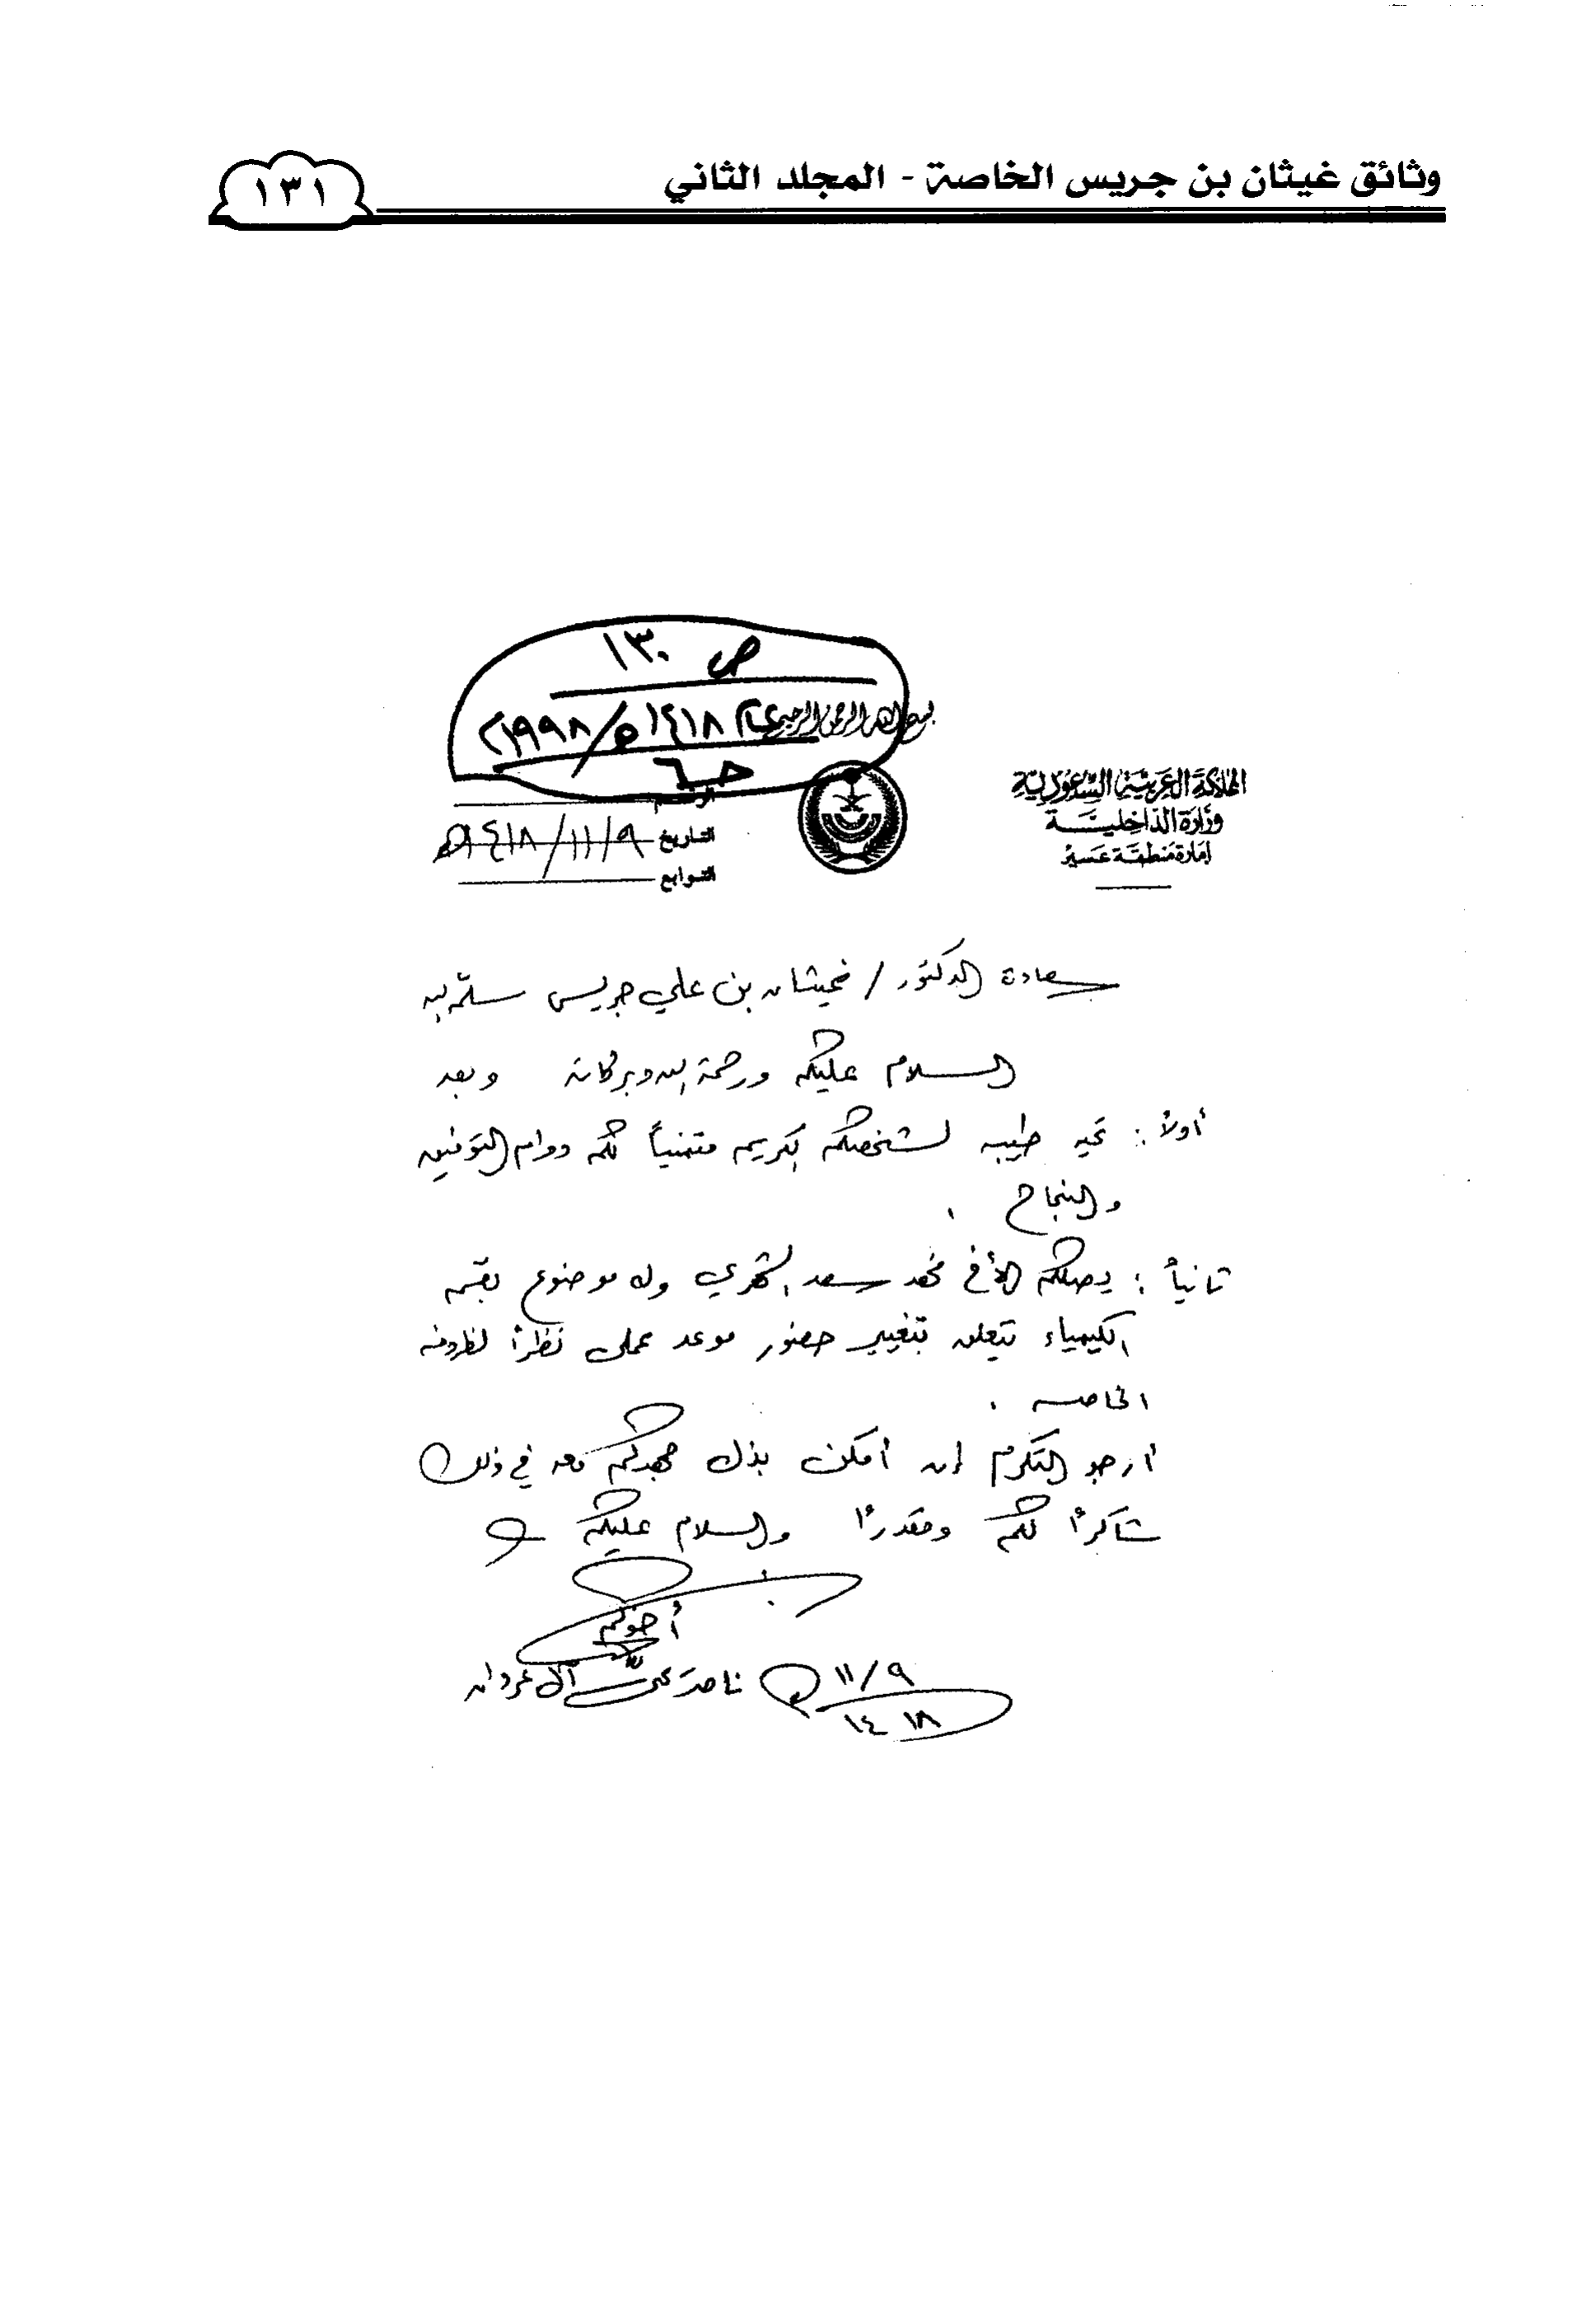 وثائق غيثان بن جريس الخاصة - المجلد الثاني
١٣١
ص ١٣٠
١٤١٨هـ/١٩٩٨م
بسم الله الرحمن الرحيم
المملكة العربية السعودية
وزارة الداخلية
إمارة منطقة عسير
الرقم
التاريخ ٩/١١/١٤١٨هـ
التوابع
سعادة الدكتور / غيثان بن علي جريس سلمه الله
السلام عليكم ورحمة الله وبركاته وبعد
أولاً : تحيه طيبه لشخصكم الكريم متمنياً لكم دوام التوفيق
والنجاح .
ثانياً : يصلكم الأخ محمد سعد الشهري وله موضوع بقسم
الكيمياء تتعلق بتغيير حضور موعد عملي نظراً لظروفه
الخاصه .
أرجو التكرم إن أمكن بذل جهدكم معه في ذلك
شاكراً لكم ومقدراً والسلام عليكم
أخوكم
ناصر آل عردان
٩/١١
١٤١٨